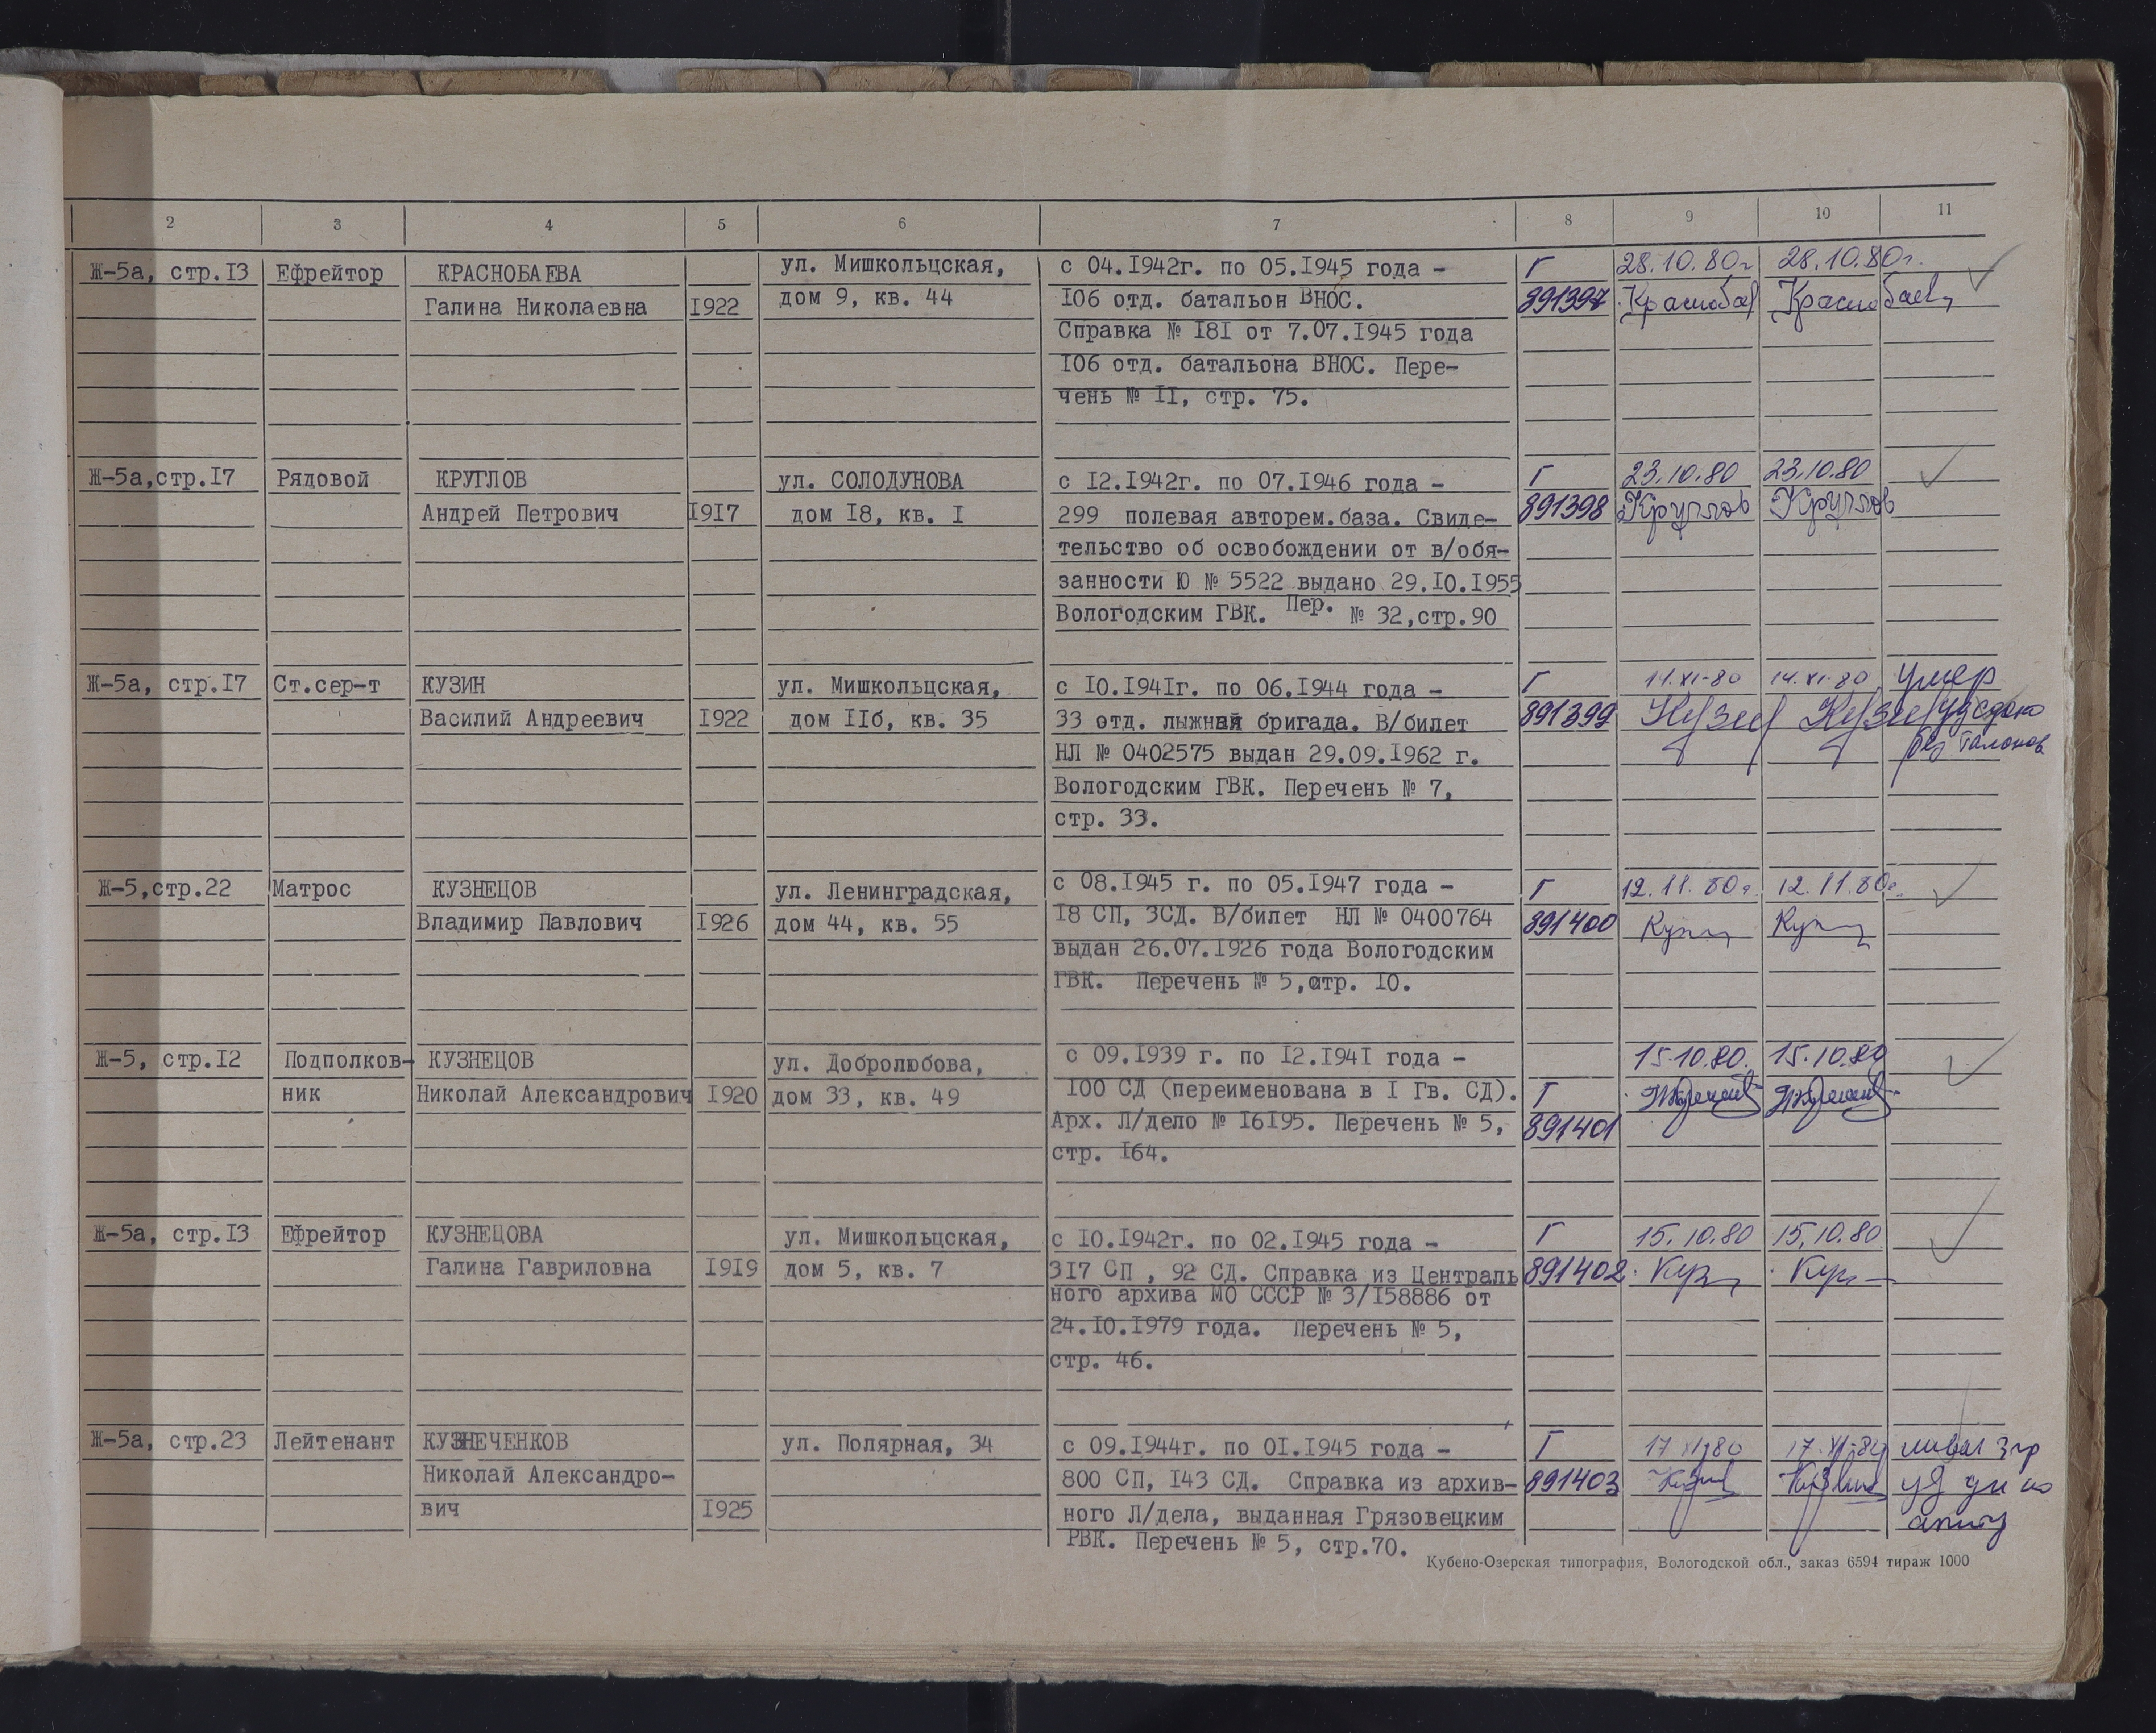 2 3 4 5 6 7 8 9 10 11
Ж-5а, стр.I3 Ефрейтор КРАСНОБАЕВА ул. Мишкольцская, с 04.I942г. по 05.I945 года - Г 28.10.80г 28.10.80г.
Галина Николаевна I922 дом 9, кв. 44 I06 отд. батальон ВНОС. 891397 Краснобаев Краснобаев
Справка № I8I от 7.07.I945 года
I06 отд. батальона ВНОС. Пере-
чень № II, стр. 75.
Ж-5а,стр.I7 Рядовой КРУГЛОВ ул. СОЛОДУНОВА с I2.I942г. по 07.I946 года - Г 23.10.80 23.10.80
Андрей Петрович I9I7 дом I8, кв. I 299 полевая авторем.база. Свиде- 891398 Круглов Круглов
тельство об освобождении от в/обя-
занности Ю № 5522 выдано 29.I0.I955
Вологодским ГВК. Пер. № 32,стр.90
Ж-5а, стр.I7 Ст.сер-т КУЗИН ул. Мишкольцская, с I0.I94Iг. по 06.I944 года - Г 14.XI-80 14.XI-80 умер
Василий Андреевич I922 дом II6, кв. 35 33 отд. лыжная бригада. В/билет 891399 Кузин Кузин уд сдано
НЛ № 0402575 выдан 29.09.I962 г. без талонов
Вологодским ГВК. Перечень № 7,
стр. 33.
Ж-5,стр.22 Матрос КУЗНЕЦОВ ул. Ленинградская, с 08.I945 г. по 05.I947 года - Г 12.11.80г. 12.11.80г.
Владимир Павлович I926 дом 44, кв. 55 I8 СП, 3СД. В/билет НЛ № 0400764 891400
выдан 26.07.I926 года Вологодским
ГВК. Перечень № 5,стр. I0.
Ж-5, стр.I2 Подполков- КУЗНЕЦОВ ул. Добролюбова, с 09.I939 г. по I2.I94I года - 15.10.80. 15.10.80
ник Николай Александрович I920 дом 33, кв. 49 I00 СД (переименована в I Гв. СД). Г
Арх. Л/дело № I6I95. Перечень № 5, 891401
стр. I64.
Ж-5а, стр.I3 Ефрейтор КУЗНЕЦОВА ул. Мишкольцская, с I0.I942г. по 02.I945 года - Г 15.10.80 15.10.80
Галина Гавриловна I9I9 дом 5, кв. 7 3I7 СП , 92 СД. Справка из Централь 891402
ного архива МО СССР № 3/I58886 от
24.I0.I979 года. Перечень № 5,
стр. 46.
Ж-5а, стр.23 Лейтенант КУЗНЕЧЕНКОВ ул. Полярная, 34 с 09.I944г. по 0I.I945 года - Г 17 XI-80 17.XI-80
Николай Александро- 800 СП, I43 СД. Справка из архив- 891403
вич I925 ного Л/дела, выданная Грязовецким
РВК. Перечень № 5, стр.70.
Кубено-Озерская типография, Вологодской обл., заказ 6594 тираж 1000